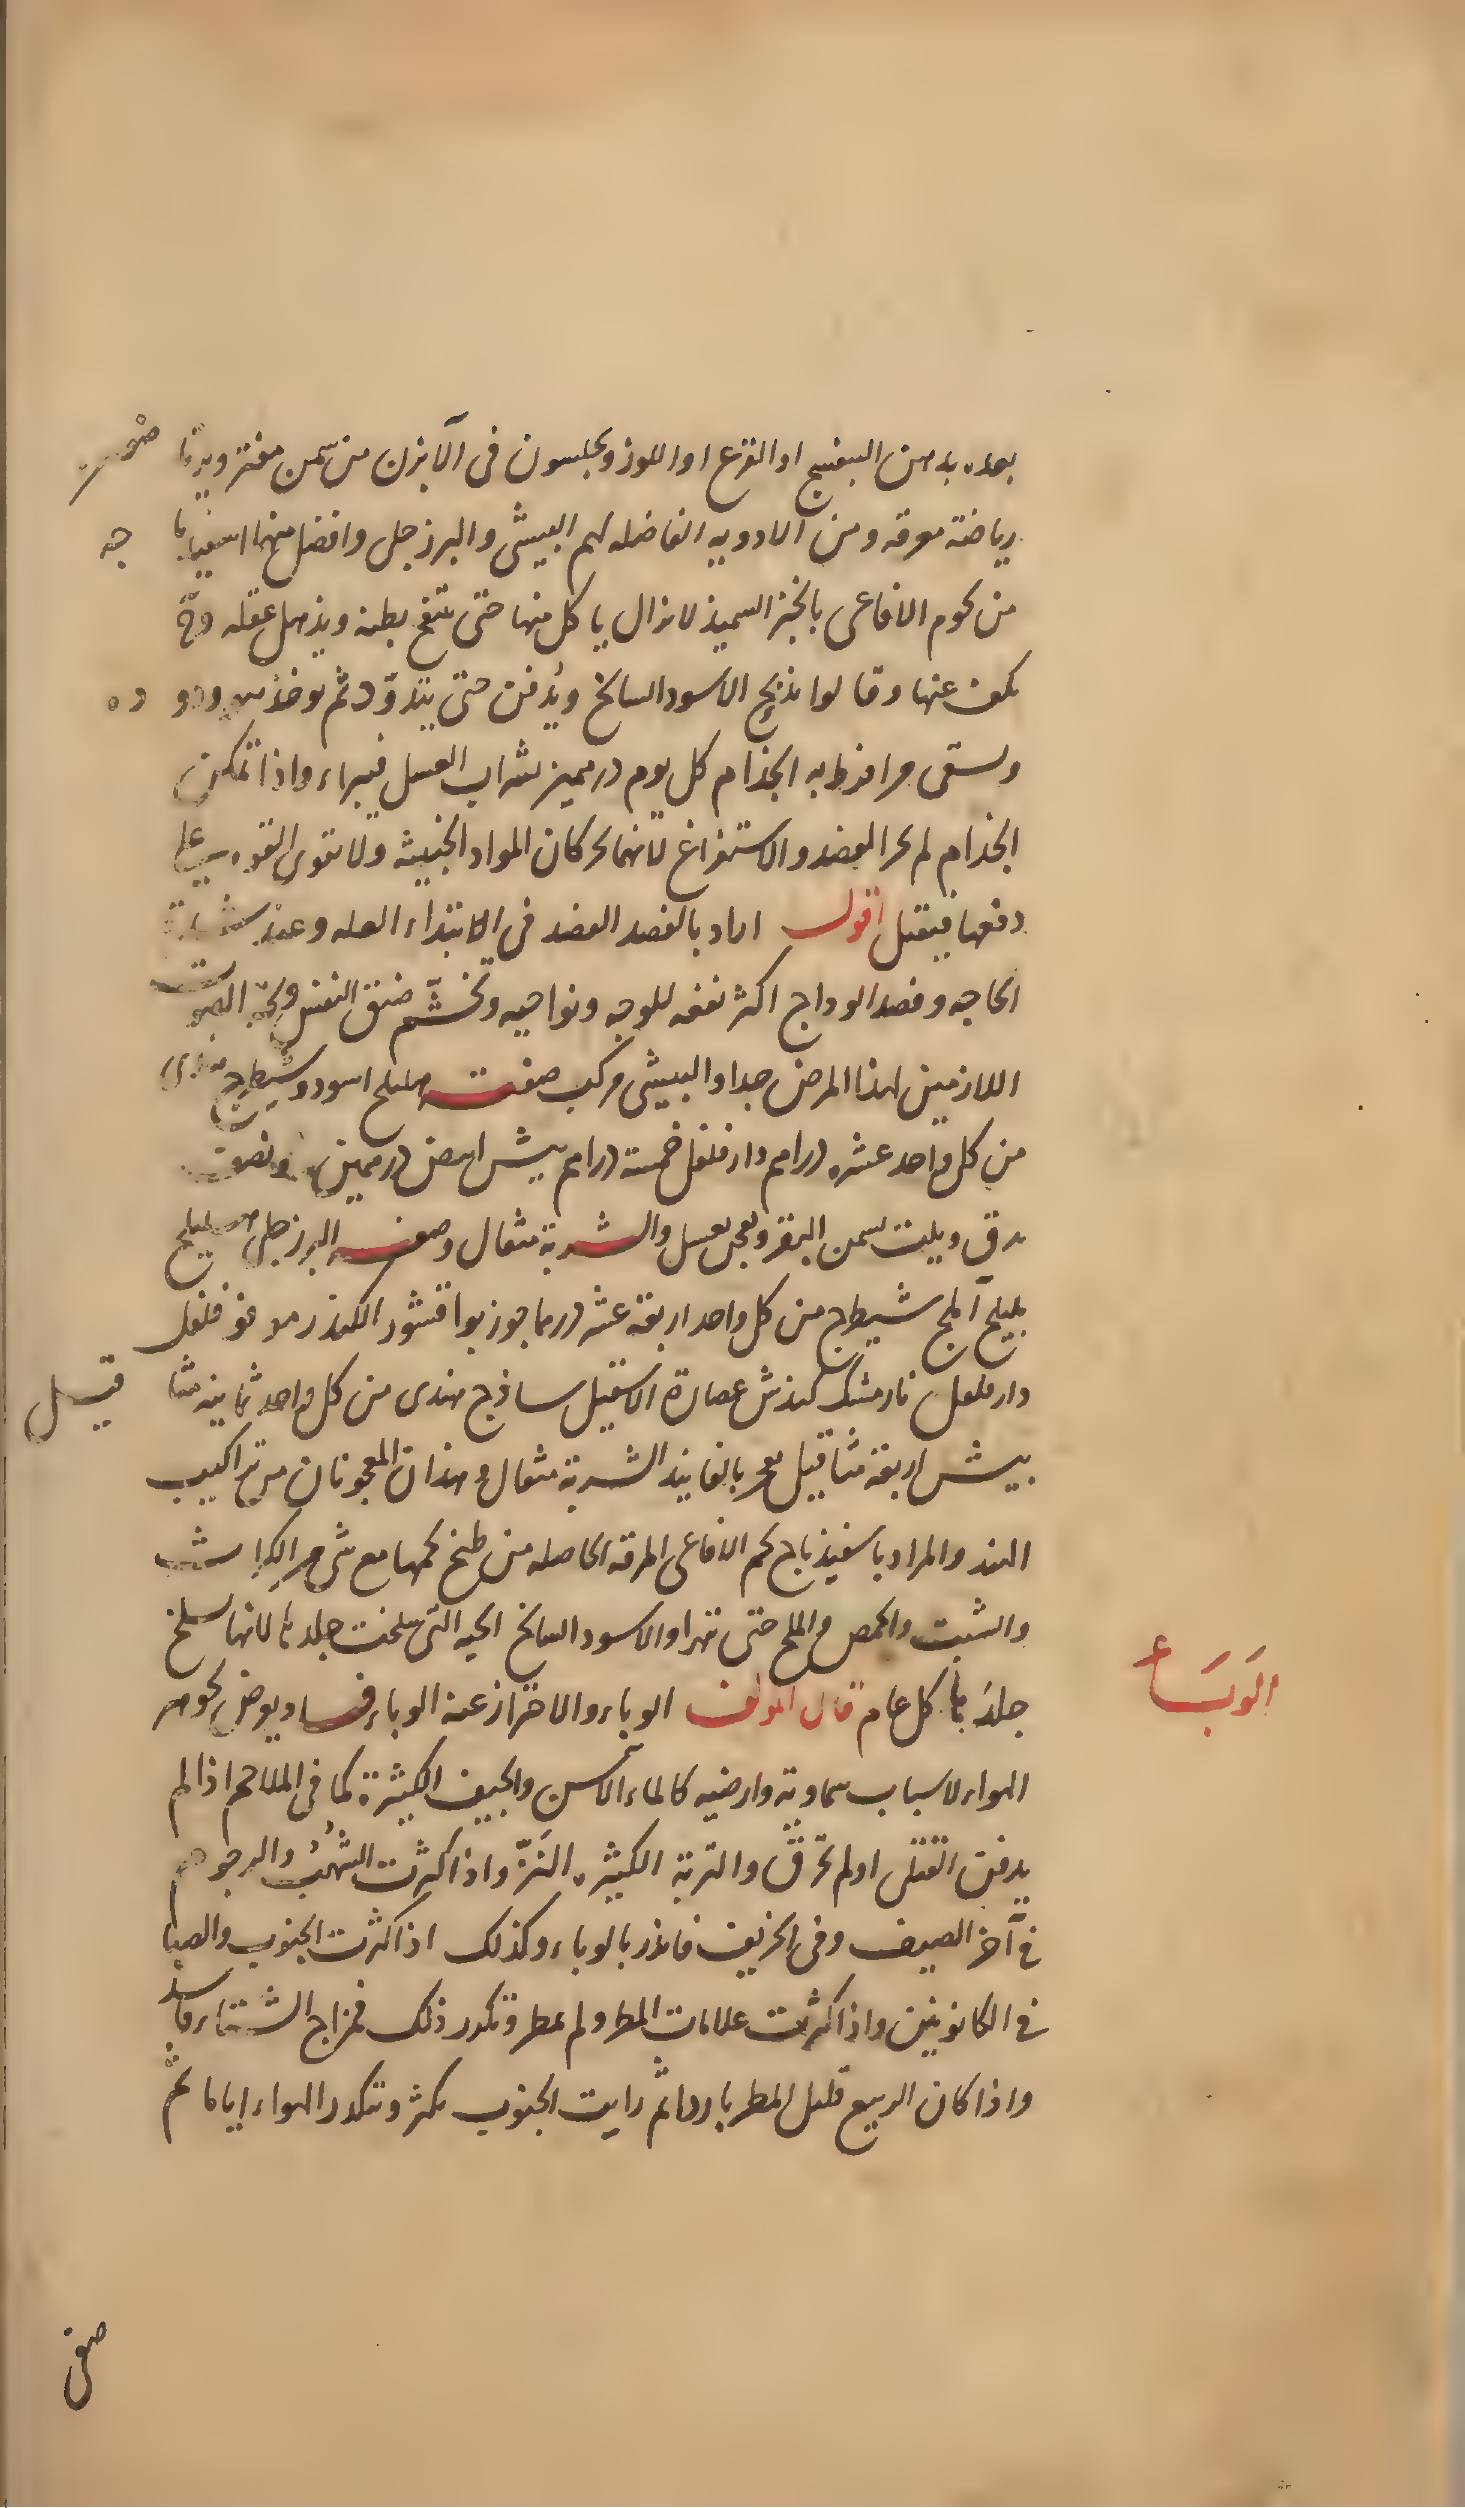 بعده بدهن البنفسج او القرع او اللوز ويجلسون فى الآبزن من سمن مفتر ويرتاضون
رياضة معرقه ومن الادويه الفاضله لهم البيشى والبرزجلى وافضل منهما اسفيذباجه
من لحوم الافاعى بالخبز السميذ لا يزال ياكل منها حتى ينتفخ بطنه ويذهل عقله وح
يكف عنها وقالوا يذبح الاسود السالخ ويُدفن حتى يتدوّد ثم يوخذ مع دوده
ويسقى من افرط به الجذام كل يوم درهمين بشراب العسل فيبراء واذا تمكن
الجذام لم يجز الفصد والاستفراغ لانهما يحركان المواد الخبيثه ولا تقوى القوه على
دفعها فيقتل اقول اراد بالفصد الفصد فى الابتداء العله وعند شدة
الحاجه وفصد الوداج اكثر نفعه للوجه ونواحيه وتجشّم ضيق النفس وبحّة الصوت
اللازمين لهذا المرض جدا والبيشى مركب صفته هليلج اسود وشيطرج هندى
من كل واحد عشره دراهم دارفلفل خمسة دراهم بيش ابيض درهمين ونصف
يدق ويلت بسمن البقر ويعجن بعسل والشربة مثقال وصفه البرزجلى هليلج
بليلج آملج شيطرج من كل واحد اربعة عشر درهما جوزبوا قشور الكندر فلفل
دارفلفل نارمشك كندش عصارة الاسقيل ساذج هندى من كل واحد ثمانيه مثاقيل
بيش اربعة مثاقيل يعجن بالفانيذ الشربة مثقال وهذان المعجونان من تراكيب
الهند والمراد باسفيذباج لحم الافاعى المرقه الحاصله من طبخ لحمها مع شى من الكراث
والشبت والحمص والملح حتى تهرا والاسود السالخ الحيه التى سلخت جلدها لانها تسلخ
جلدَها كل عام قال المولف الوباء والاحتراز عنه الوباء فساد يعرض لجوهر
الهواء لاسباب سماوية وارضيه كالماء الآسن والجيف الكثيرة كما فى الملاحم اذا لم
يدفن القتلى او لم تحرق والتربة الكثيره النَزّ واذا كثرت الشُهُب والرجوم
فى آخر الصيف وفى الخريف فانذر بالوباء وكذلك اذا كثرت الجنوب والصبا
فى الكانونين واذا كثرت علامات المطر ولم يمطر وتكرر ذلك فمزاج الشتاء فاسد
واذا كان الربيع قليل المطر باردا ثم رايت الجنوب يكثر وتتكدر الهواء اياما ثم
الوَبَاء
صفى